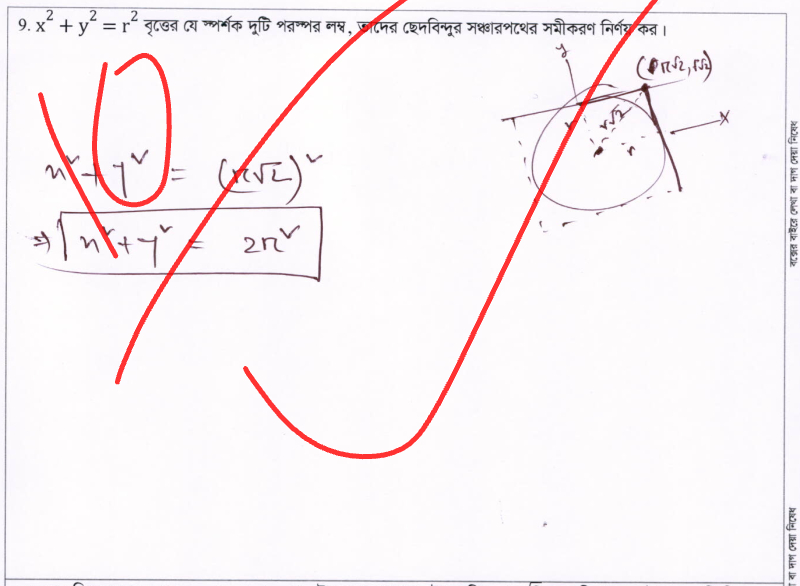 9. x² + y² = r² বৃত্তের যে স্পর্শক দুটি পরস্পর লম্ব, তাদের ছেদবিন্দুর সঞ্চারপথের সমীকরণ নির্ণয় কর।
y
(r√2, r√2)
x
r r√2 r
x² + y² = (r√2)²
⇒ x² + y² = 2r²
10
বক্সের বাইরে লেখা বা দাগ দেয়া নিষেধ
বা দাগ দেয়া নিষেধ